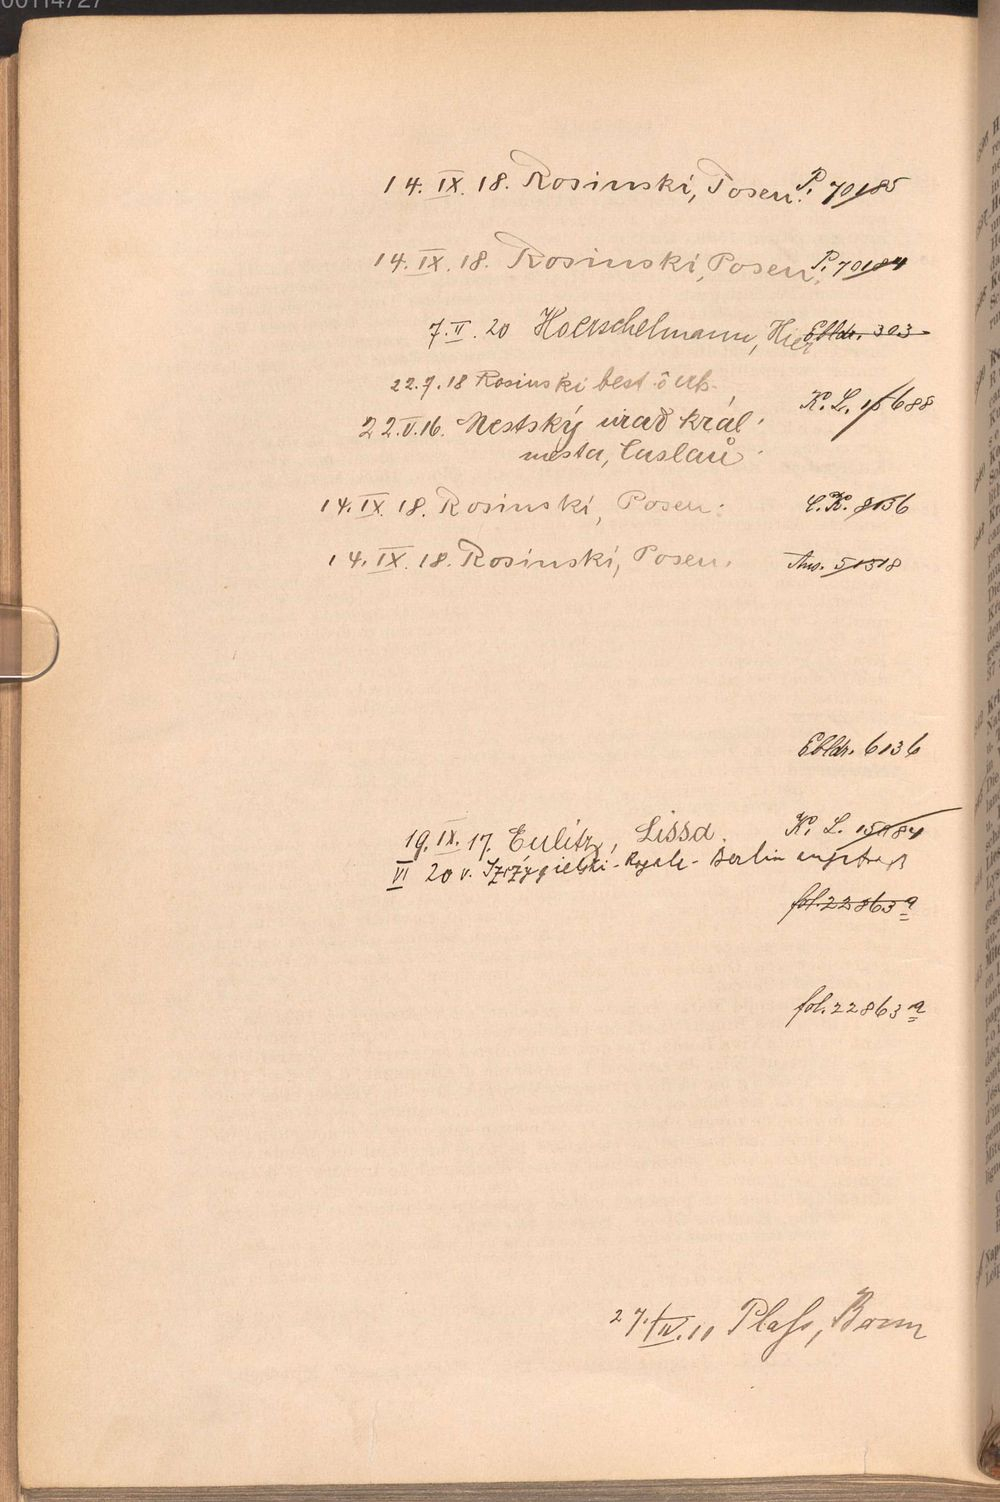 00114727
14. IX. 18. Rosinski, Posen. P. 70185
14. IX. 18. Rosinski, Posen. P. 70184
7. II. 20 Hoerschelmann, Hier Ebldr. 303
22.7.18 Rosinski best.
K. L. 15688
22.V.16. Mestský úrad král.
mesta, Caslau
14. IX. 18. Rosinski, Posen. C. K. 8136
14. IX. 18. Rosinski, Posen. Aus. 51318
Ebldr. 6136
19. IX. 17. Eulitz, Lissa. K. L. 15084
VI 20 v. Berlin
fol. 22863 a
fol. 22863 a
27./IV. 10 Plass, Bonn